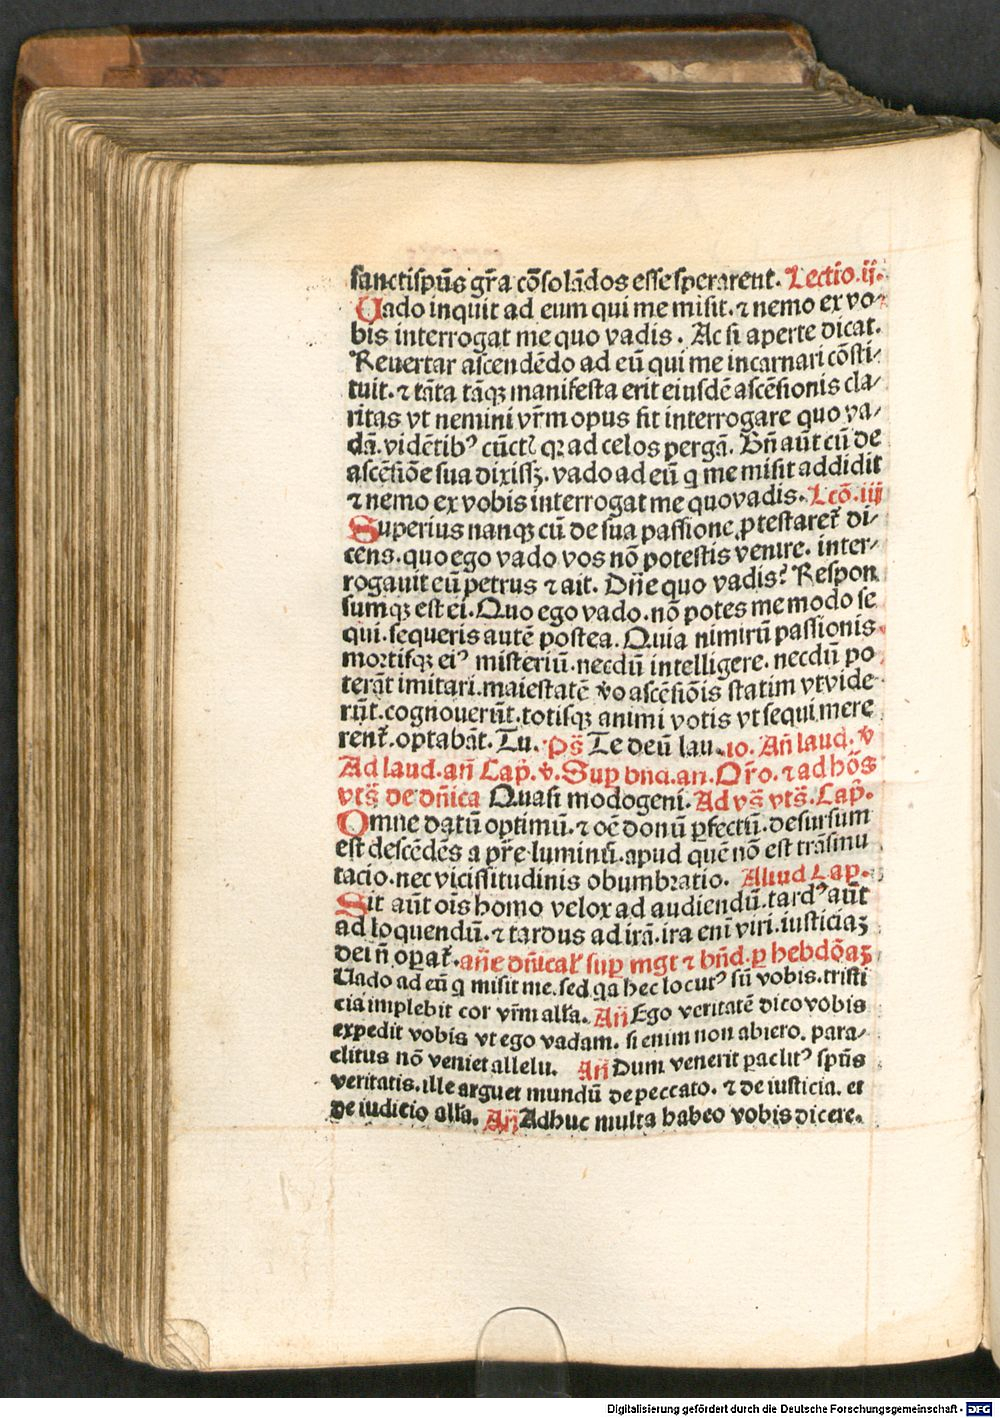 sanctispūs gr̄a cōsolādos esse sperarent. Lectio.ij.
Uado inquit ad eum qui me misit. ⁊ nemo ex vo-
bis interrogat me quo vadis. Ac si aperte dicat.
Reuertar ascendēdo ad eū qui me incarnari cōsti-
tuit. ⁊ tāta tāqꝫ manifesta erit eiusdē ascēsionis cla-
ritas vt nemini vr̄m opus sit interrogare quo va-
dā. vidētibꝰ cūctꝭ qꝛ ad celos pergā. Bn̄ aūt cū de
ascēsiōe sua dixissꝫ. vado ad eū q me misit addidit
⁊ nemo ex vobis interrogat me quo vadis. Lcō.iij
Superius nanqꝫ cū de sua passione ꝓtestaret̄ di-
cens. quo ego vado vos nō potestis venire. inter-
rogauit eū petrus ⁊ ait. Dn̄e quo vadis? Respon
sumqꝫ est ei. Quo ego vado. nō potes me modo se
qui. sequeris autē postea. Quia nimirū passionis
mortisqꝫ eiꝰ misteriū. necdū intelligere. necdū po
terāt imitari. maiestatē v̄o ascēsiōis statim vt vide
rūt. cognouerūt. totisqꝫ animi votis vt sequi mere
rent̄. optabāt. Tu. Ps̄ Te deū lau. io. An̄ laud. v̄
Ad laud. an̄ Cap̄. v̄. Sup bnd. an. Or̄o. ⁊ ad hōs
vts̄ de dn̄ica Quasi modogeni. Ad vs̄ vts̄. Cap̄.
Omne datū optimū. ⁊ oē donū ꝑfectū. desursum
est descēdēs a pr̄e luminū. apud quē nō est trāsmu
tacio. nec vicissitudinis obumbratio. Aliud Cap.
Sit aūt oīs homo velox ad audiendū. tardꝰ aūt
ad loquendū. ⁊ tardus ad irā. ira enī viri. iusticiaꝫ
dei n̄ oꝑat̄. an̄e dn̄ical̄ suꝑ mgt ⁊ bn̄d. ꝑ hebdōaꝫ
Uado ad eū q misit me. sed qa hec locutꝰ sū vobis. tristi
cia implebit cor vr̄m all̄a. An̄ Ego veritatē dico vobis
expedit vobis vt ego vadam. si enim non abiero. para-
clitus nō veniet allelu. An̄ Dum venerit paclitꝰ spūs
veritatis. ille arguet mundū de peccato. ⁊ de iusticia. et
de iudicio all̄a. An̄ Adhuc multa habeo vobis dicere.
Digitalisierung gefördert durch die Deutsche Forschungsgemeinschaft - DFG